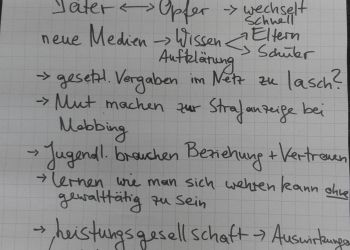 Täter ↔ Opfer → wechselt
schnell
neue Medien → Wissen Eltern
Aufklärung Schüler
→ gesetzl. Vorgaben im Netz zu lasch?
→ Mut machen zur Strafanzeige bei
Mobbing
→ Jugendl. brauchen Beziehung + Vertrauen
→ lernen wie man sich wehren kann ohne
gewalttätig zu sein
→ Leistungsgesellschaft → Auswirkungen